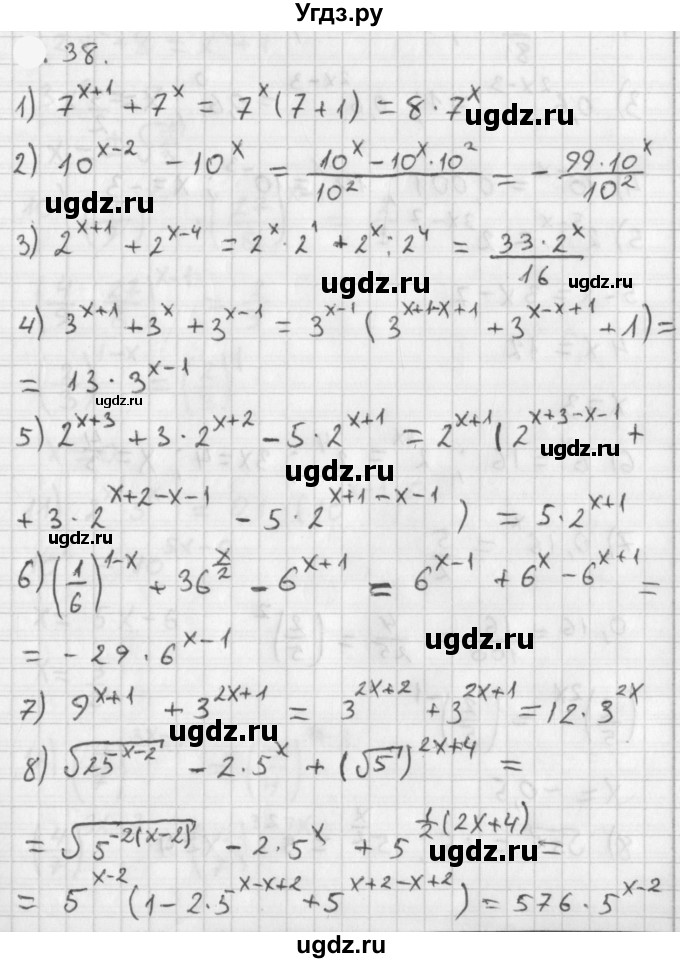 Угдз.ру
. 38.
1) 7^{x+1} + 7^x = 7^x (7+1) = 8 · 7^x
ugdz.ru
2) 10^{x-2} - 10^x = \frac{10^x - 10^x · 10^2}{10^2} = - \frac{99 · 10^x}{10^2}
ugdz.ru
ugdz.ru
3) 2^{x+1} + 2^{x-4} = 2^x · 2^1 + 2^x : 2^4 = \frac{33 · 2^x}{16}
ugdz.ru
4) 3^{x+1} + 3^x + 3^{x-1} = 3^{x-1} (3^{x+1-x+1} + 3^{x-x+1} + 1) =
= 13 · 3^{x-1}
ugdz.ru
5) 2^{x+3} + 3 · 2^{x+2} - 5 · 2^{x+1} = 2^{x+1} (2^{x+3-x-1} +
ugdz.ru
ugdz.ru
+ 3 · 2^{x+2-x-1} - 5 · 2^{x+1-x-1} ) = 5 · 2^{x+1}
ugdz.ru
6) (\frac{1}{6})^{1-x} + 36^{\frac{x}{2}} - 6^{x+1} = 6^{x-1} + 6^x - 6^{x+1} =
ugdz.ru
= - 29 · 6^{x-1}
7) 9^{x+1} + 3^{2x+1} = 3^{2x+2} + 3^{2x+1} = 12 · 3^{2x}
ugdz.ru
8) \sqrt{25^{x-2}} - 2 · 5^x + (\sqrt{5})^{2x+4} =
= \sqrt{5^{-2(x-2)}} - 2 · 5^x + 5^{\frac{1}{2}(2x+4)} =
ugdz.ru
= 5^{x-2} (1 - 2 · 5^{x-x+2} + 5^{x+2-x+2}) = 576 · 5^{x-2}
ugdz.ru